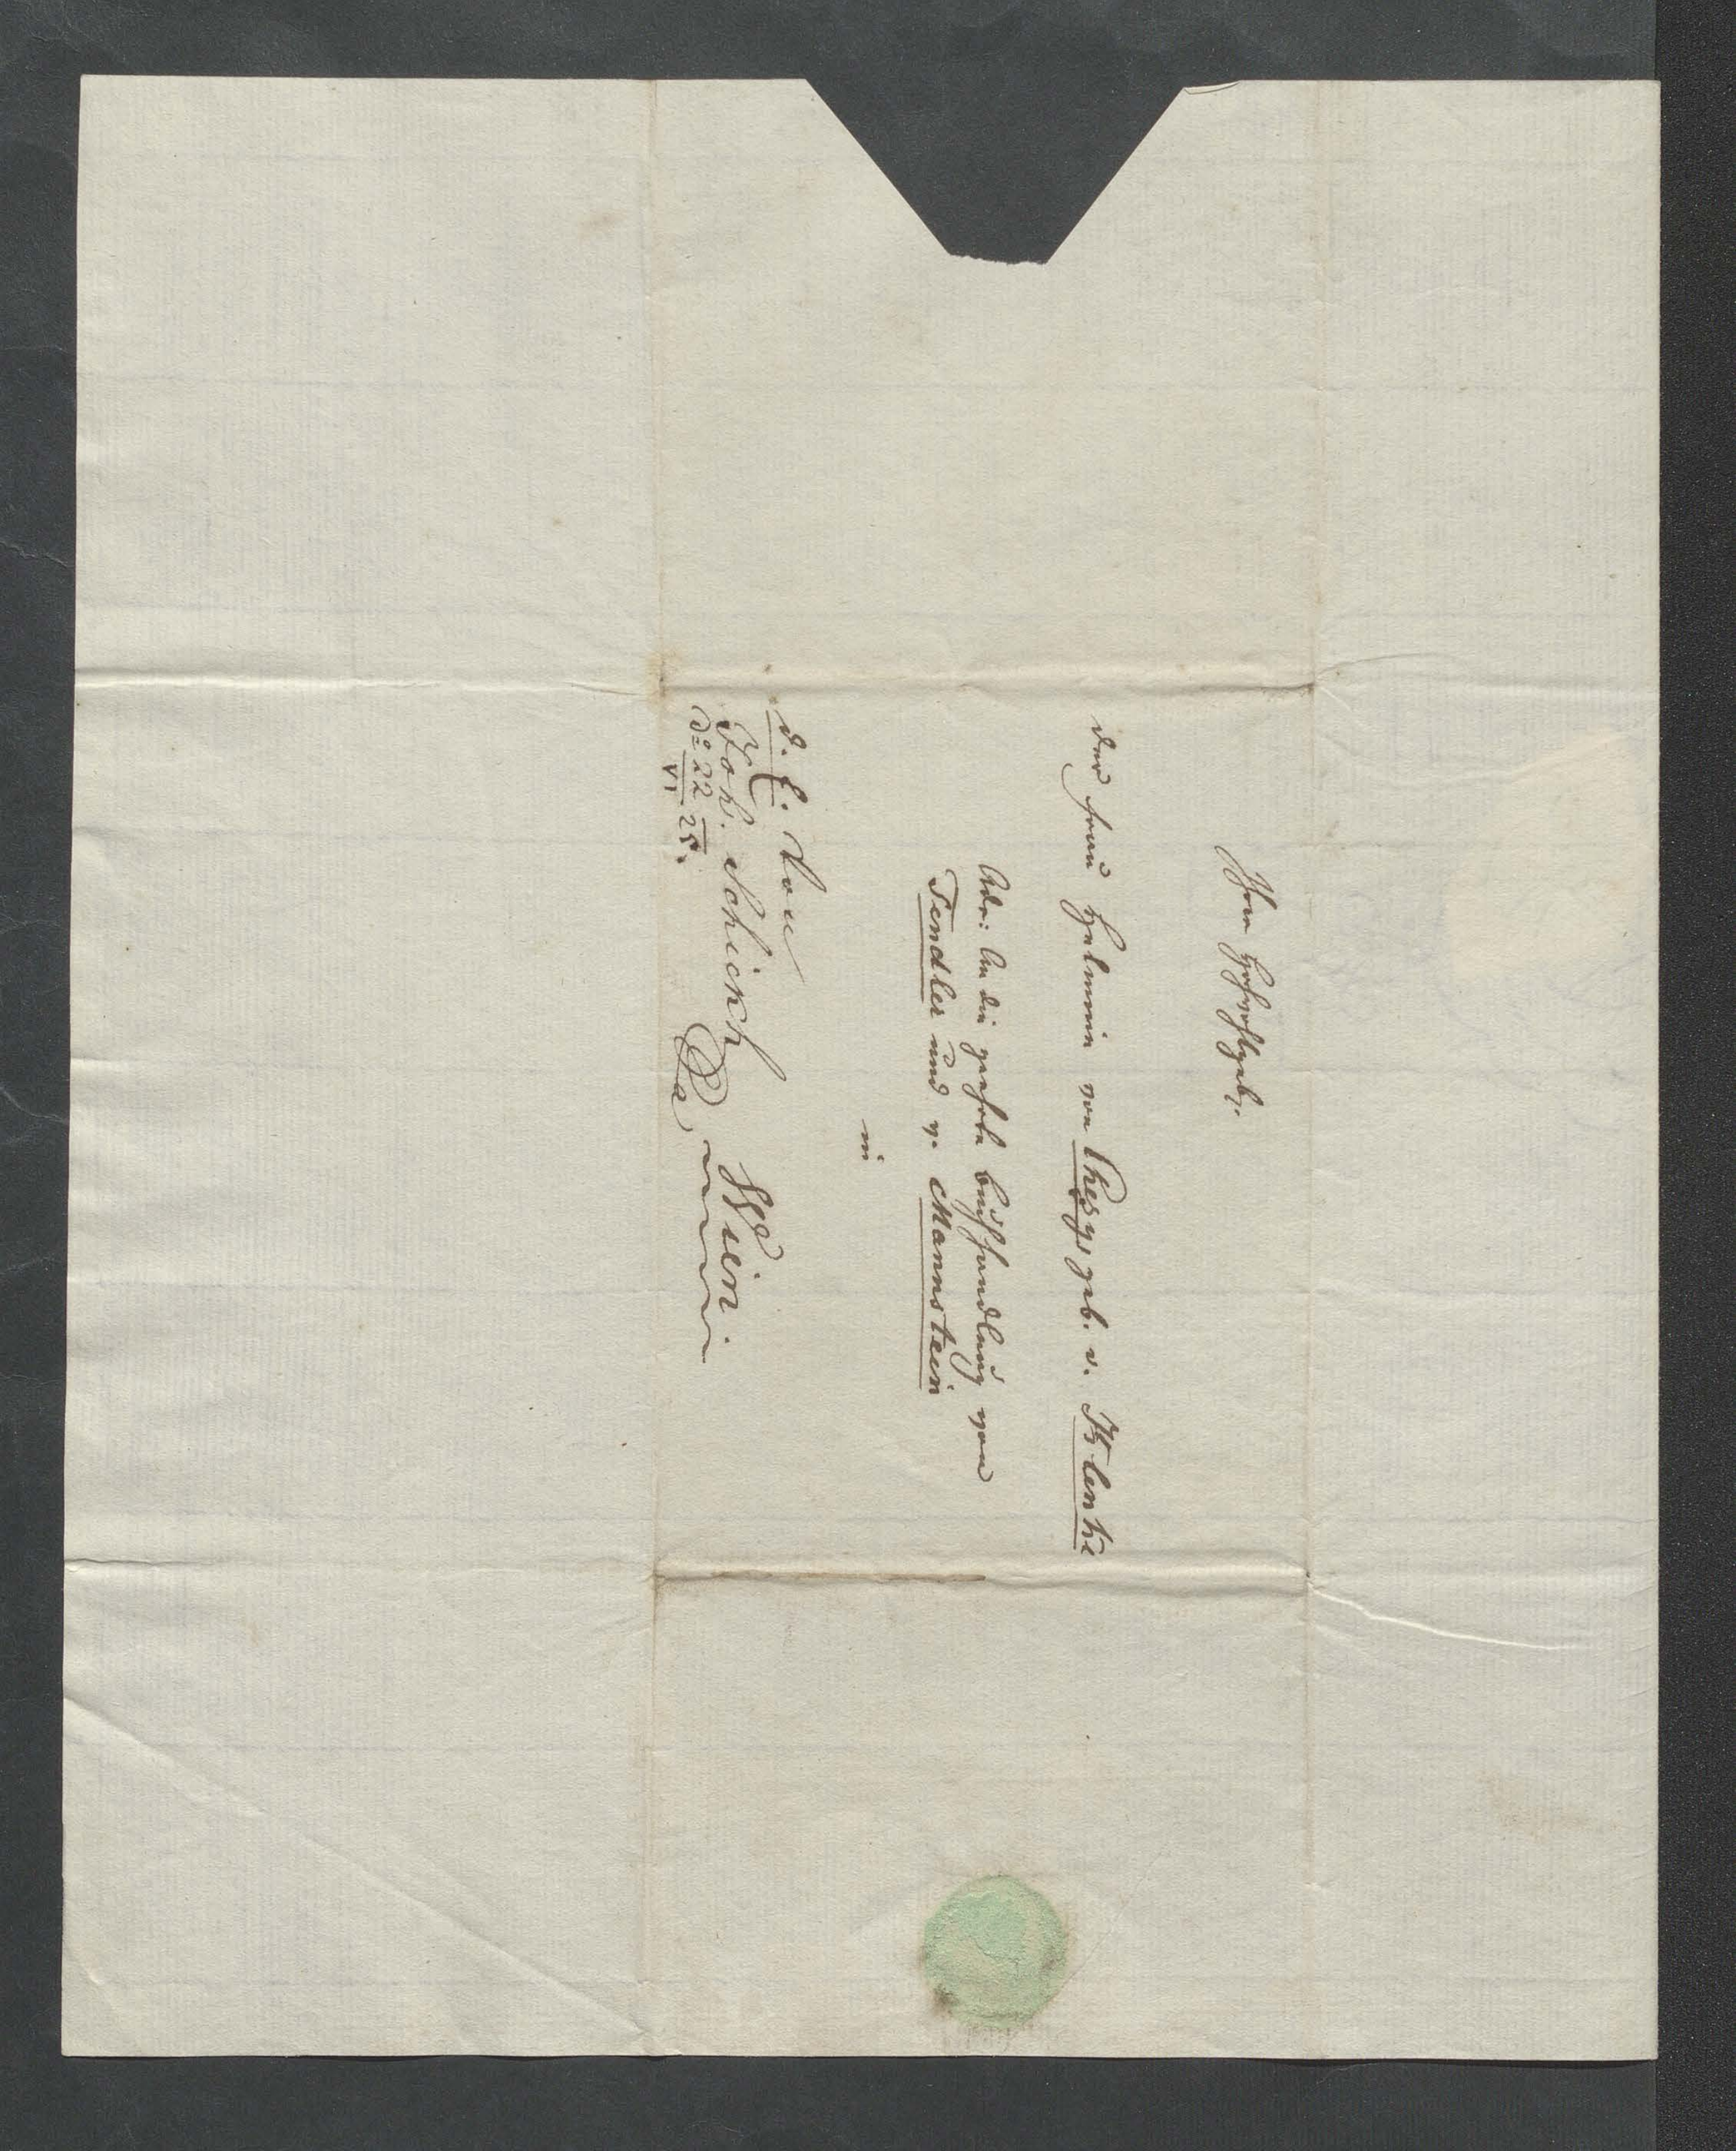 Ihro Hochwohlgeb.
der Frau Helmine von Chezy geb. v. Klenke
Adr: An die geehrte Buchhandlung von
Tendler und v. Mannstein
in
Wien.
d. E. von
Joh. Schickh
do 22/VI 25.